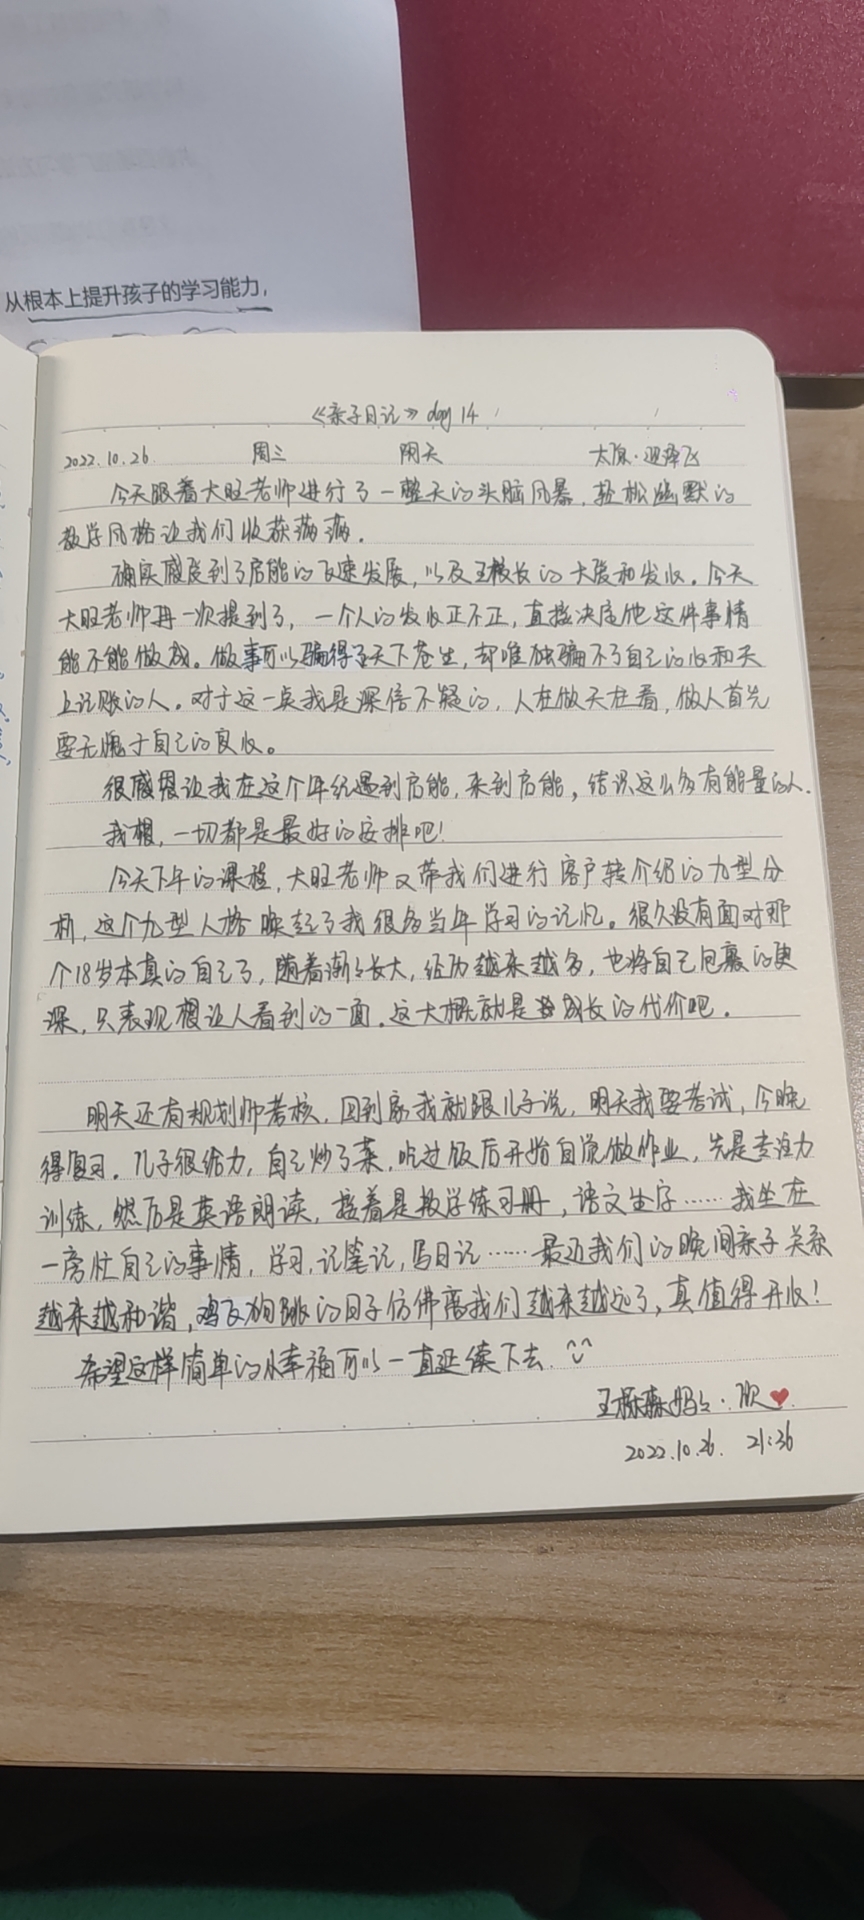 从根本上提升孩子的学习能力，
《亲子日记》day 14
2022.10.26 周三 阴天 太原·迎泽飞
今天跟着大旺老师进行了一整天的头脑风暴，轻松幽默的
教学风格让我们收获满满.
确实感受到了启能的飞速发展，以及王校长的大爱和发心。今天
大旺老师再一次提到了，一个人的发心正不正，直接决定他这件事情
能不能做成。做事可以骗得了天下苍生，却唯独骗不了自己的心和天
上记账的人。对于这一点我是深信不疑的，人在做天在看，做人首先
要无愧于自己的良心。
很感恩让我在这个年纪遇到启能，来到启能，结识这么多有能量的人.
我想，一切都是最好的安排吧！
今天下午的课程，大旺老师又带我们进行客户转介绍的九型分
析，这个九型人格唤起了我很多当年学习的记忆。很久没有面对那
个18岁本真的自己了，随着渐渐长大，经历越来越多，也将自己包裹的更
深，只表现想让人看到的一面。这大概就是成长的代价吧.
明天还有规划师考核，回到家我就跟儿子说，明天我要考试，今晚
得复习。儿子很给力，自己炒了菜，吃过饭后开始自觉做作业，先是专注力
训练，然后是英语朗读，接着是数学练习册，语文生字……我坐在
一旁忙自己的事情，学习，记笔记，写日记……最近我们的晚间亲子关系
越来越和谐，鸡飞狗跳的日子仿佛离我们越来越远了，真值得开心！
希望这样简单的小幸福可以一直延续下去.^^
妈妈·欣❤
2022.10.26. 21:36